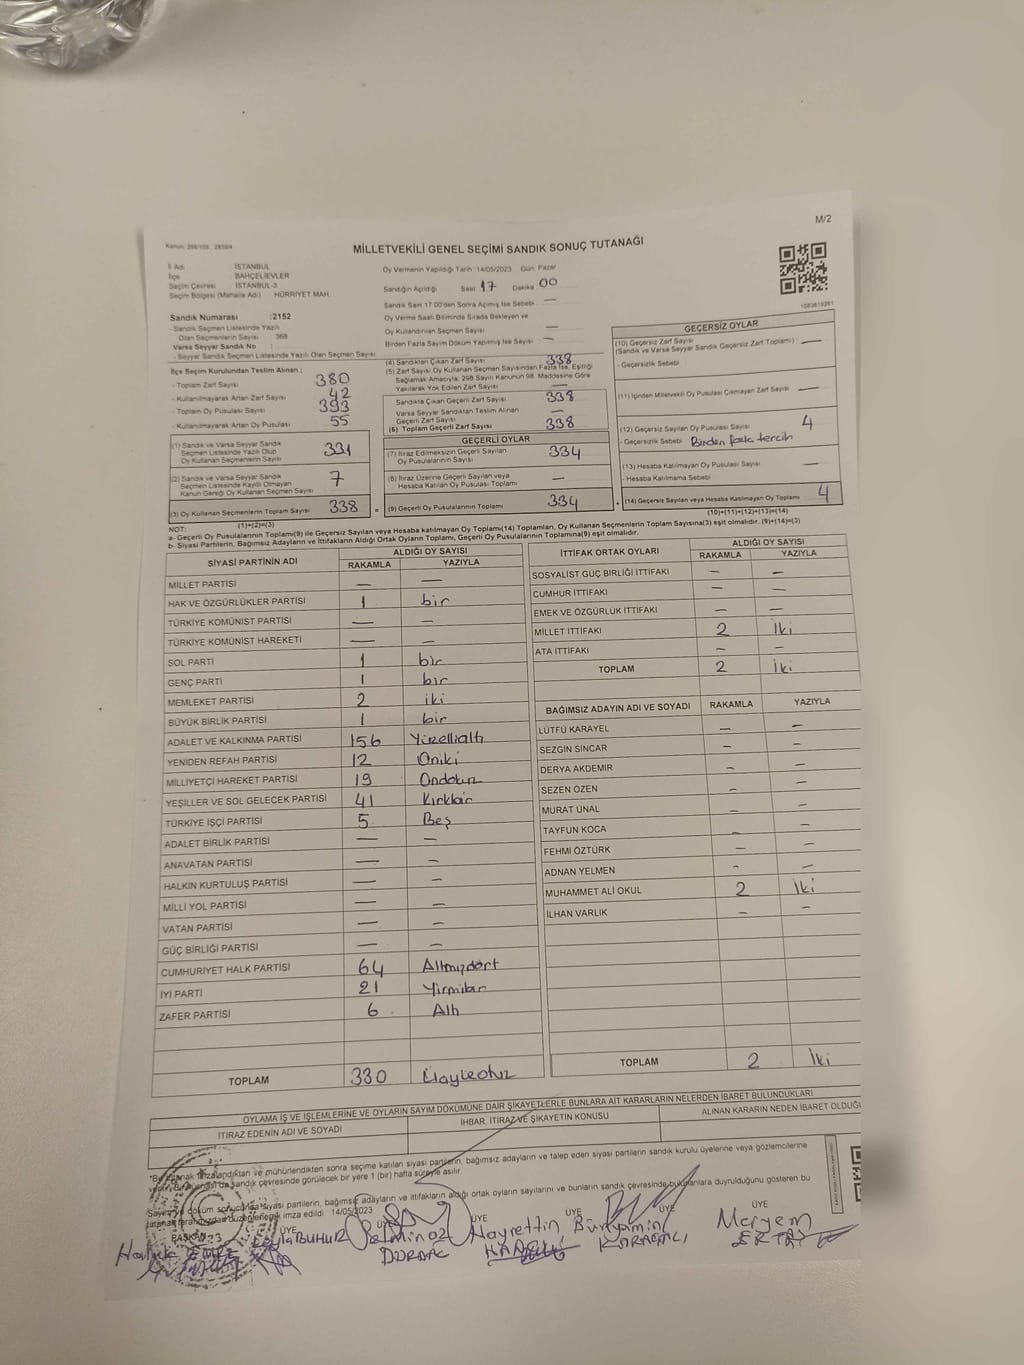 M/2
Kanun: 298/105 : 2839/4
MİLLETVEKİLİ GENEL SEÇİMİ SANDIK SONUÇ TUTANAĞI
İl Adı : İSTANBUL
İlçe : BAHÇELİEVLER
Seçim Çevresi : İSTANBUL-3
Seçim Bölgesi (Mahalle Adı) HÜRRİYET MAH.
Oy Vermenin Yapıldığı Tarih :14/05/2023 Gün: Pazar
Sandığın Açıldığı Saat 17 Dakika 00
Sandık Saati 17:00'den Sonra Açılmış İse Sebebi —
Oy Verme Saati Bitiminde Sırada Bekleyen ve
Oy Kullandırılan Seçmen Sayısı —
Birden Fazla Sayım Döküm Yapılmış İse Sayısı : —
1083619261
Sandık Numarası :2152
- Sandık Seçmen Listesinde Yazılı
Olan Seçmenlerin Sayısı : 368
Varsa Seyyar Sandık No :
- Seyyar Sandık Seçmen Listesinde Yazılı Olan Seçmen Sayısı
İlçe Seçim Kurulundan Teslim Alınan ;
- Toplam Zarf Sayısı 380
- Kullanılmayarak Artan Zarf Sayısı 42
- Toplam Oy Pusulası Sayısı 393
- Kullanılmayarak Artan Oy Pusulası 55
(1) Sandık ve Varsa Seyyar Sandık
Seçmen Listesinde Yazılı Olup
Oy Kullanan Seçmenlerin Sayısı 331
(2) Sandık ve Varsa Seyyar Sandık
Seçmen Listesinde Kayıtlı Olmayan
Kanun Gereği Oy Kullanan Seçmen Sayısı 7
(3) Oy Kullanan Seçmenlerin Toplam Sayısı 338
(1)+(2)=(3)
(4) Sandıktan Çıkan Zarf Sayısı 338
(5) Zarf Sayısı Oy Kullanan Seçmen Sayısından Fazla İse, Eşitliği
Sağlamak Amacıyla; 298 Sayılı Kanunun 98. Maddesine Göre
Yakılarak Yok Edilen Zarf Sayısı —
Sandıkta Çıkan Geçerli Zarf Sayısı 338
Varsa Seyyar Sandıktan Teslim Alınan
Geçerli Zarf Sayısı —
(6) Toplam Geçerli Zarf Sayısı 338
GEÇERLİ OYLAR
(7) İtiraz Edilmeksizin Geçerli Sayılan
Oy Pusulalarının Sayısı 334
(8) İtiraz Üzerine Geçerli Sayılan veya
Hesaba Katılan Oy Pusulası Toplamı —
(9) Geçerli Oy Pusulalarının Toplamı 334
GEÇERSİZ OYLAR
(10) Geçersiz Zarf Sayısı —
(Sandık ve Varsa Seyyar Sandık Geçersiz Zarf Toplamı)
- Geçersizlik Sebebi
(11) İçinden Milletvekili Oy Pusulası Çıkmayan Zarf Sayısı —
(12) Geçersiz Sayılan Oy Pusulası Sayısı 4
- Geçersizlik Sebebi Birden fazla tercih
(13) Hesaba Katılmayan Oy Pusulası Sayısı —
- Hesaba Katılmama Sebebi
(14) Geçersiz Sayılan veya Hesaba Katılmayan Oy Toplamı 4
(10)+(11)+(12)+(13)=(14)
NOT:
a- Geçerli Oy Pusulalarının Toplamı(9) ile Geçersiz Sayılan veya Hesaba katılmayan Oy Toplamı(14) Toplamları, Oy Kullanan Seçmenlerin Toplam Sayısına(3) eşit olmalıdır. (9)+(14)=(3)
b- Siyasi Partilerin, Bağımsız Adayların ve İttifakların Aldığı Ortak Oyların Toplamı, Geçerli Oy Pusulalarının Toplamına(9) eşit olmalıdır.
SİYASİ PARTİNİN ADI ALDIĞI OY SAYISI
RAKAMLA YAZIYLA
MİLLET PARTİSİ — —
HAK VE ÖZGÜRLÜKLER PARTİSİ 1 bir
TÜRKİYE KOMÜNİST PARTİSİ — —
TÜRKİYE KOMÜNİST HAREKETİ — —
SOL PARTİ 1 bir
GENÇ PARTİ 1 bir
MEMLEKET PARTİSİ 2 iki
BÜYÜK BİRLİK PARTİSİ 1 bir
ADALET VE KALKINMA PARTİSİ 156 Yüzellialtı
YENİDEN REFAH PARTİSİ 12 Oniki
MİLLİYETÇİ HAREKET PARTİSİ 19 Ondokuz
YEŞİLLER VE SOL GELECEK PARTİSİ 41 Kırkbir
TÜRKİYE İŞÇİ PARTİSİ 5 Beş
ADALET BİRLİK PARTİSİ — —
ANAVATAN PARTİSİ — —
HALKIN KURTULUŞ PARTİSİ — —
MİLLİ YOL PARTİSİ — —
VATAN PARTİSİ — —
GÜÇ BİRLİĞİ PARTİSİ — —
CUMHURİYET HALK PARTİSİ 64 Altmışdört
İYİ PARTİ 21 Yirmibir
ZAFER PARTİSİ 6 Altı
TOPLAM 330 Üçyüzotuz
İTTİFAK ORTAK OYLARI ALDIĞI OY SAYISI
RAKAMLA YAZIYLA
SOSYALİST GÜÇ BİRLİĞİ İTTİFAKI — —
CUMHUR İTTİFAKI — —
EMEK VE ÖZGÜRLÜK İTTİFAKI — —
MİLLET İTTİFAKI 2 İki
ATA İTTİFAKI — —
TOPLAM 2 İki
BAĞIMSIZ ADAYIN ADI VE SOYADI RAKAMLA YAZIYLA
LÜTFÜ KARAYEL — —
SEZGİN SİNCAR — —
DERYA AKDEMİR — —
SEZEN ÖZEN — —
MURAT ÜNAL — —
TAYFUN KOCA — —
FEHMİ ÖZTÜRK — —
ADNAN YELMEN — —
MUHAMMET ALİ OKUL 2 İki
İLHAN VARLIK — —
TOPLAM 2 İki
OYLAMA İŞ VE İŞLEMLERİNE VE OYLARIN SAYIM DÖKÜMÜNE DAİR ŞİKAYETLERLE BUNLARA AİT KARARLARIN NELERDEN İBARET BULUNDUKLARI
İTİRAZ EDENİN ADI VE SOYADI İHBAR, İTİRAZ VE ŞİKAYETİN KONUSU ALINAN KARARIN NEDEN İBARET OLDUĞU
imzalandıktan ve mühürlendikten sonra seçime katılan siyasi partilerin, bağımsız adayların ve talep eden siyasi partilerin sandık kurulu üyelerine veya gözlemcilerine
sandık çevresinde görülecek bir yere 1 (bir) hafta süreyle asılır.
siyasi partilerin, bağımsız adayların ve ittifakların aldığı ortak oyların sayılarını ve bunların sandık çevresinde bulunanlara duyurulduğunu gösteren bu
imza edildi. 14/05/2023
BAŞKAN ÜYE ÜYE ÜYE ÜYE ÜYE
BUHUR Hayrettin Bünyamin KARAAĞAÇLI Meryem